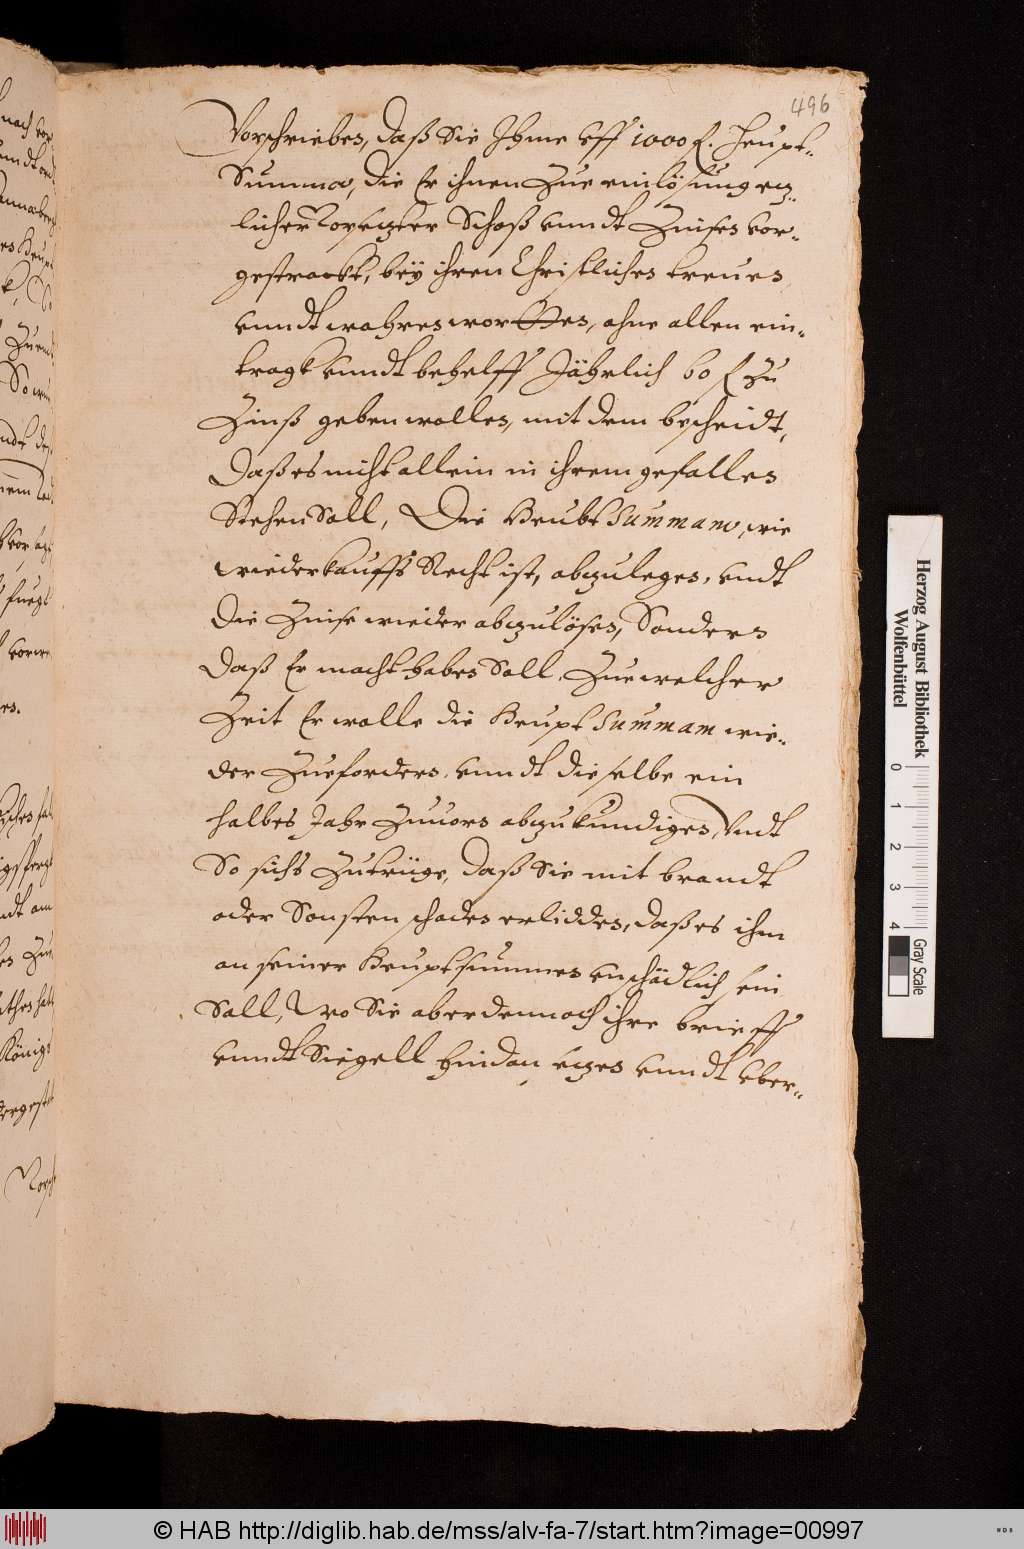 496
Vorschrieben, daß Sie Ihme vff 1000 f. Heupt-
Summa, die Er ihnen Zue einlösung etz-
licher Vorsetzter Schoß vnndt Zinsen vor-
gestrackt, bey ihren Christlichen treuen
vnndt wahren wortten, ohne allen ein-
tragk vnndt behelff Jährlich 60 f zu
Zinß geben wollen, mit dem bescheidt,
Daß es nicht allein in ihrem gefallen
Stehen Soll, Die Heubt Summam, wie
wiederkauffs Recht ist, abzulegen, vndt
die Zinse wieder abzulösen, Sondern
Daß Er macht haben Soll, Zue welcher
Zeit Er wolle die Heupt Summam wie-
der Zuefordern, vnndt dieselbe ein
halbes Jahr Zuuorn abzukundigen, Vndt
So sichs Zutrüge, daß Sie mit brandt
oder Sonsten schaden erlidden, daß es ihm
an seiner Heuptsummen vnschädlich sein
Soll, Wo Sie aber dennoch ihre brieff
vnndt Siegell hindan setzen vnndt vber-
Herzog August Bibliothek
Wolfenbüttel
0 1 2 3 4
Gray Scale
© HAB http://diglib.hab.de/mss/alv-fa-7/start.htm?image=00997